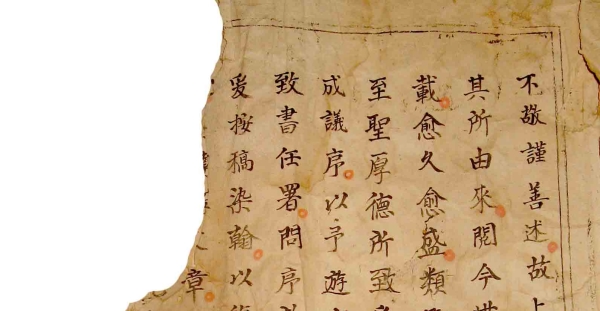 不敬謹善述故上
其所由來閱今
載愈久愈盛類
至聖厚德所致
成議序以予遊
致書任署問序
爰按稿染翰以
章